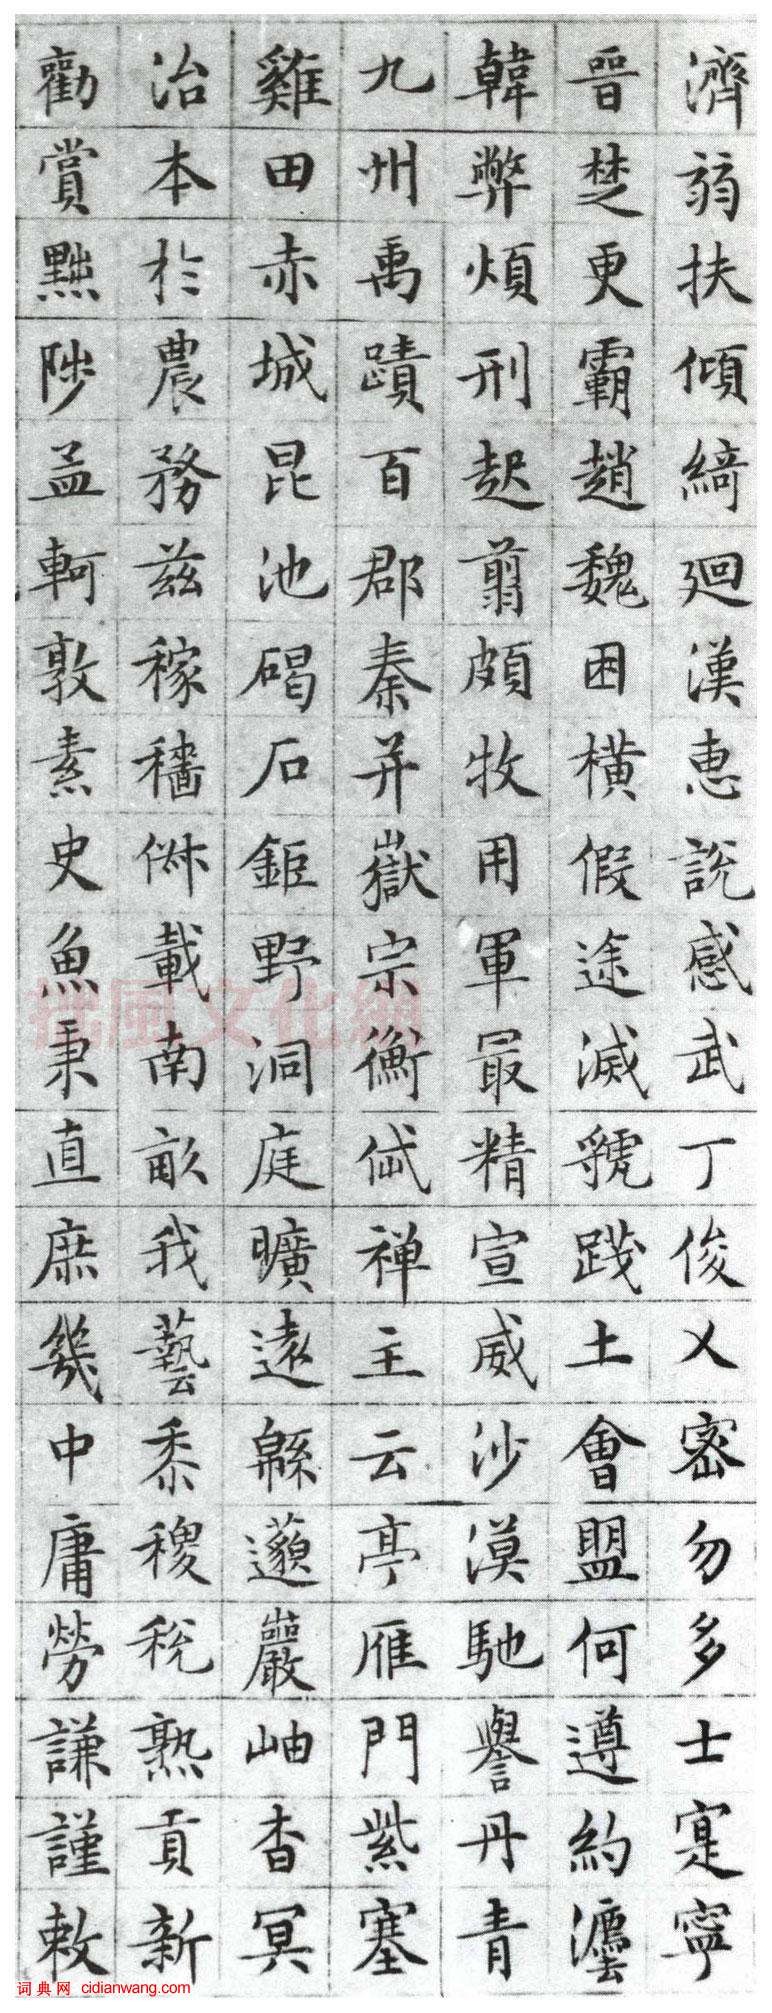 濟弱扶傾綺迴漢惠說感武丁俊乂密勿多士寔寧
晉楚更霸趙魏困橫假途滅虢踐土會盟何遵約灋
韓弊煩刑起翦頗牧用軍最精宣威沙漠馳譽丹青
九州禹蹟百郡秦并嶽宗衡岱禪主云亭雁門紫塞
雞田赤城昆池碣石鉅野洞庭曠遠緜邈巖岫杳冥
治本於農務茲稼穡俶載南畝我藝黍稷稅熟貢新
勸賞黜陟孟軻敦素史魚秉直庶幾中庸勞謙謹敕
拙風文化網
词典网 cidianwang.com